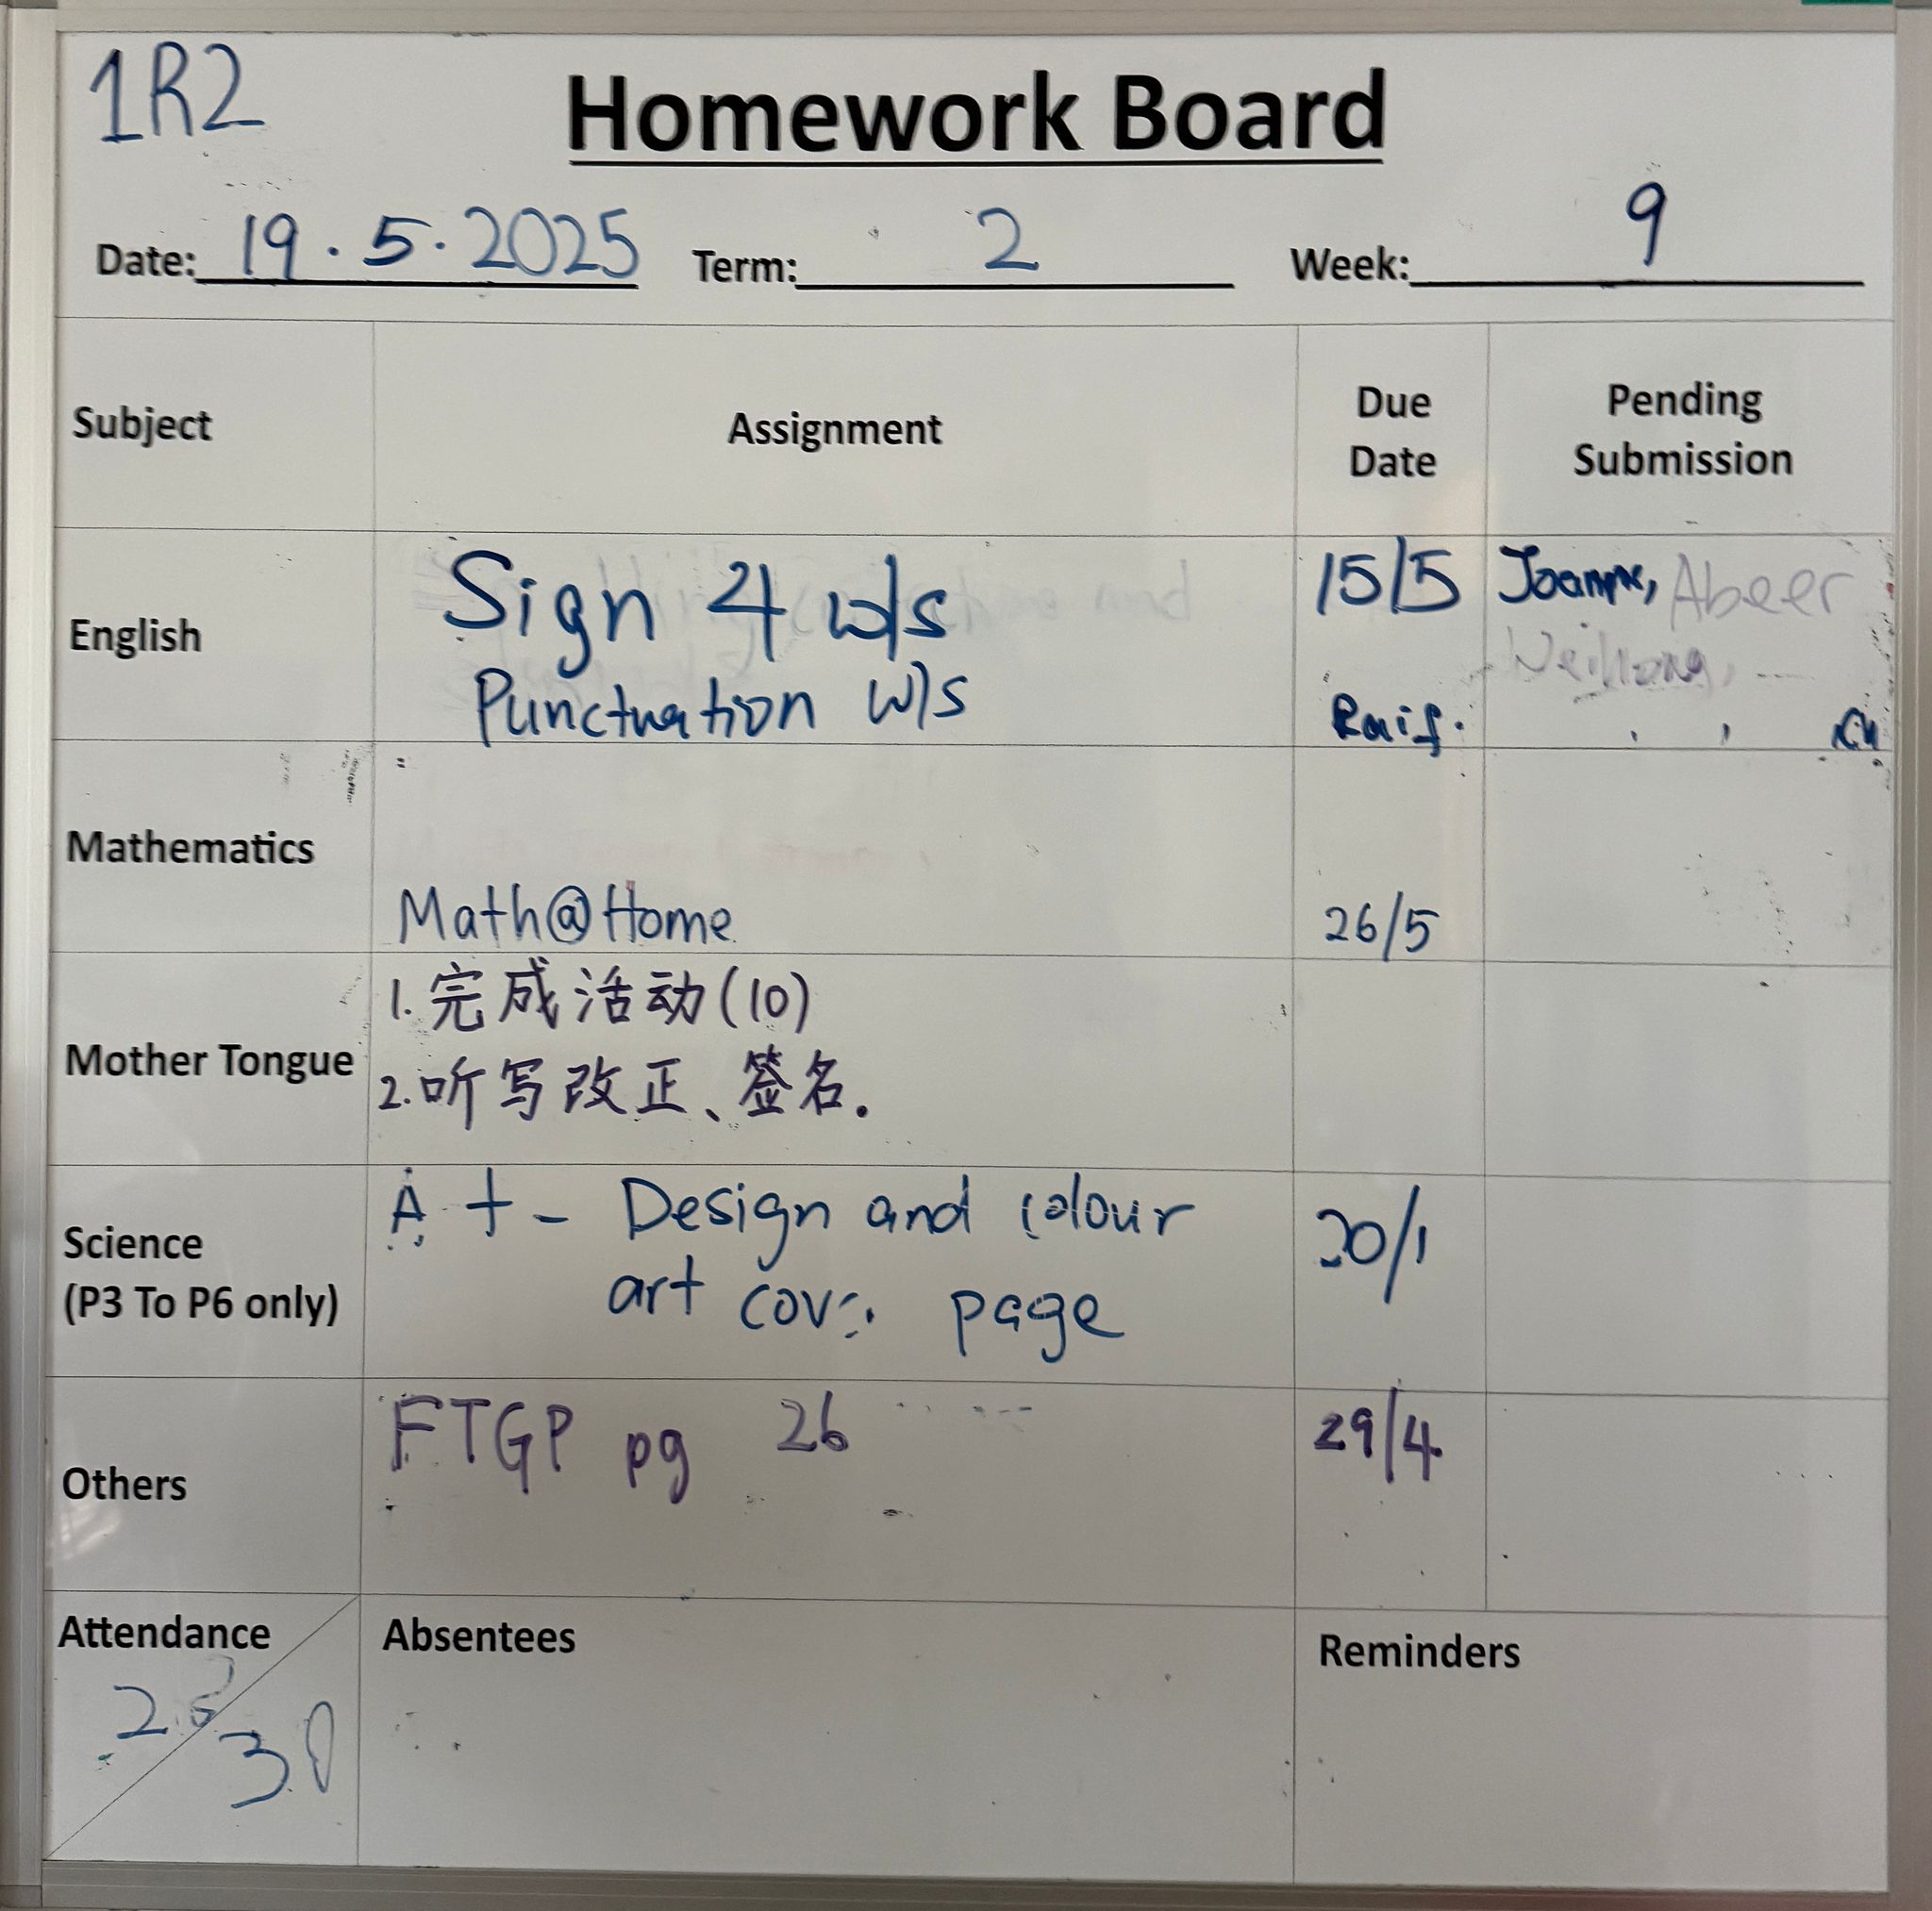 1R2
Homework Board
Date: 19.5.2025 Term: 2 Week: 9
Subject Assignment Due Date Pending Submission
English Sign 4 w/s 15/5 Abeer
Punctuation w/s Raif.
Mathematics
Math@Home 26/5
Mother Tongue
1.完成活动(10)
2.听写改正、签名.
Science
(P3 To P6 only)
A t - Design and colour
art page
Others FTGP pg 26 29/4
Attendance Absentees Reminders
30